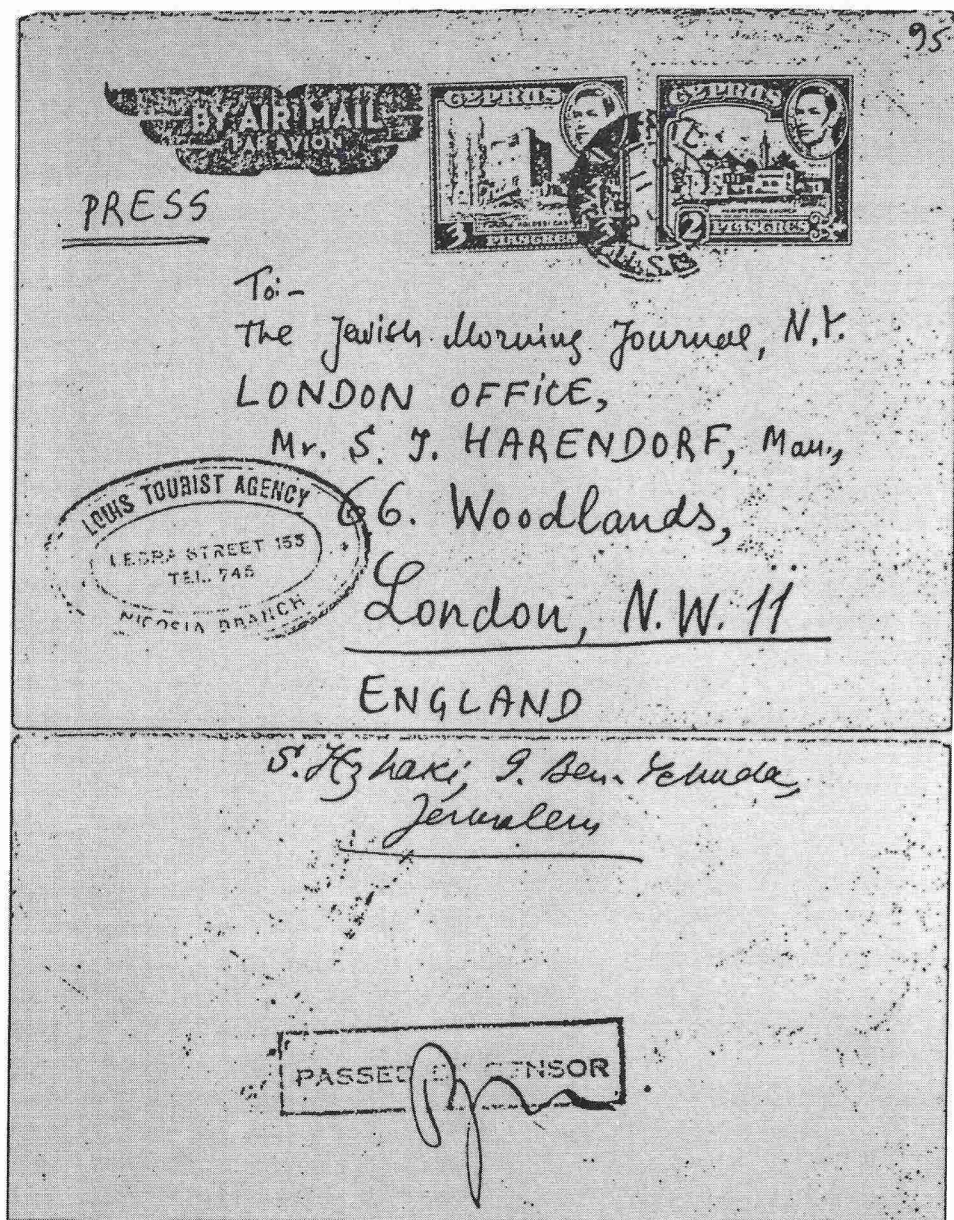 95
BY AIR MAIL
PAR AVION
CYPRUS
3
PIASTRES
3
CYPRUS
2
PIASTRES
PRESS
To:-
The Jewish Morning Journal, N.Y.
LONDON OFFICE,
Mr. S. J. HARENDORF, Man.,
66. Woodlands,
London, N.W. 11
ENGLAND
LOUIS TOURIST AGENCY
LEDRA STREET 153
TEL. 745
NICOSIA BRANCH
S. Itzhaki, 9. Ben-Yehuda,
Jerusalem
PASSED CENSOR